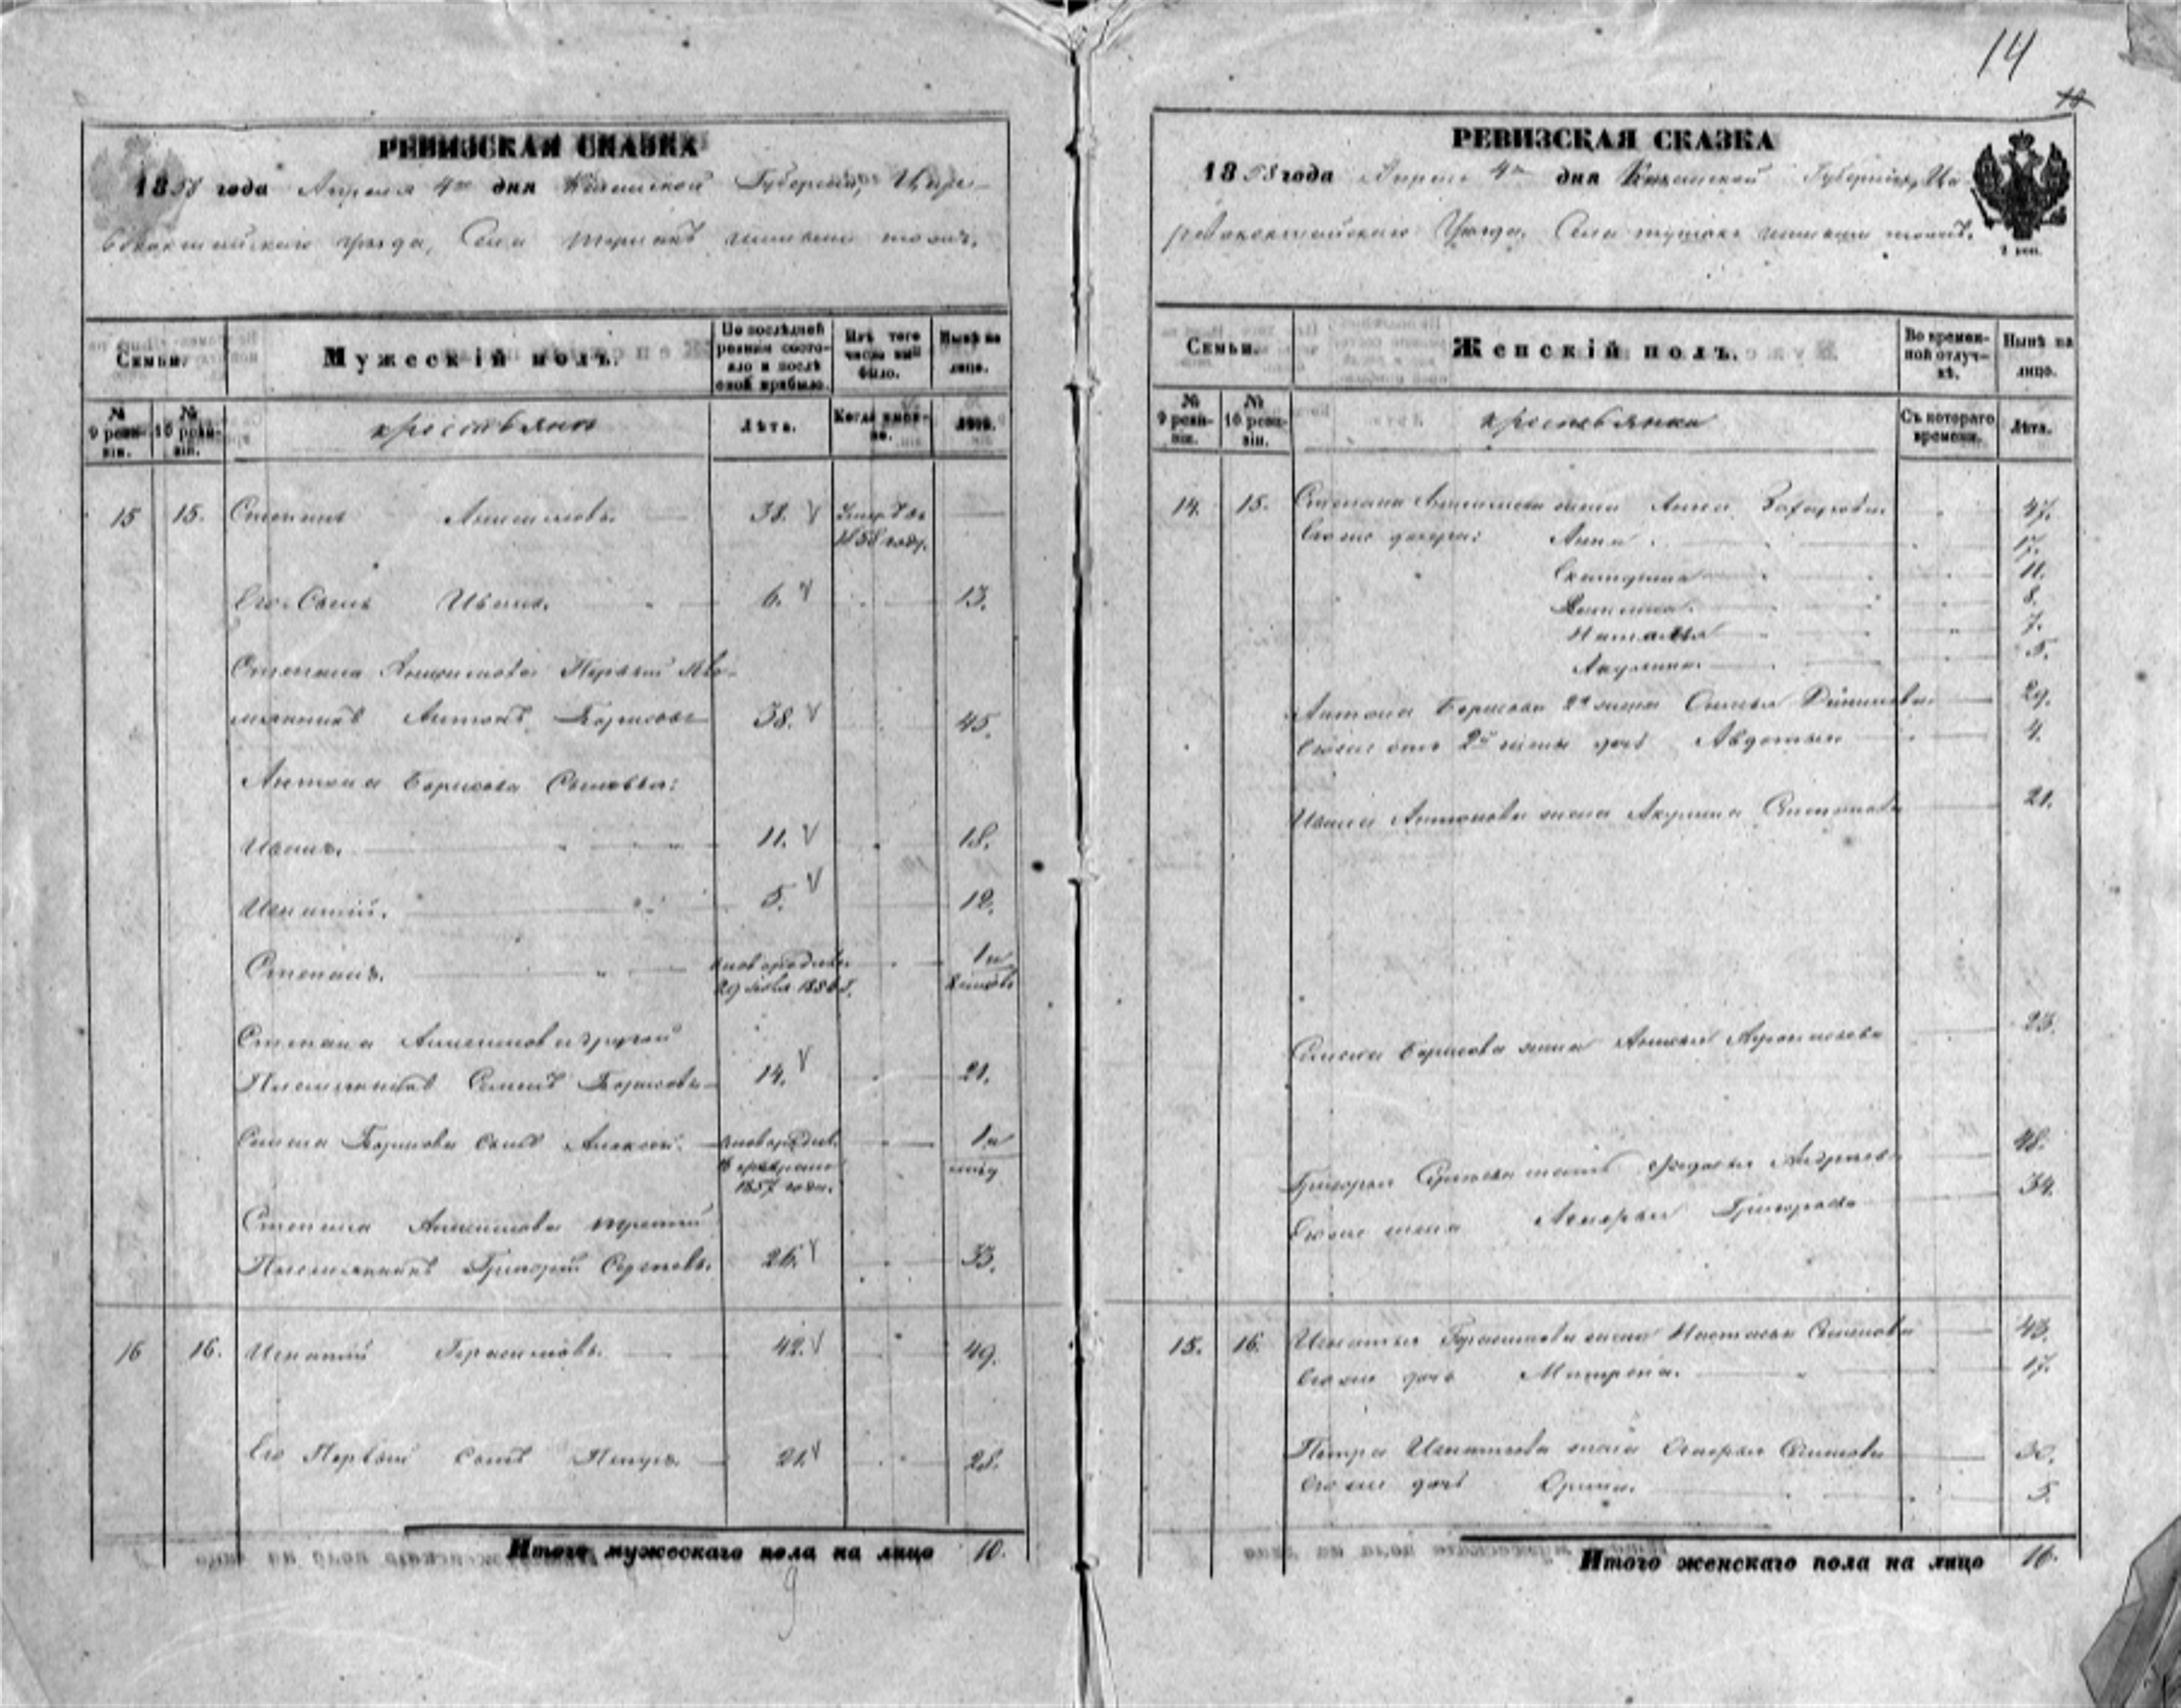 14
10
РЕВИЗСКАЯ СКАЗКА
1858 года Апреля 4го дня Казанской Губернии, Царе-
вококшайскаго уезда, Села
Семьи.
Мужескій полъ.
По послѣдней ревизіи состояло и послѣ оной прибыло.
Изъ того числа выбыло.
Нынѣ на лицо.
№ 9 ревизіи.
№ 10 ревизіи.
крестьяне
Лѣта.
Когда именно.
Лѣта.
15 15. Степанъ 38. Умеръ въ —
1858 году.
Его Сынъ Иванъ. 6. 13.
Степана Первый Пле-
мянникъ Антонъ Борисовъ 38. 45.
Антона Борисова Сыновья:
Иванъ. 11. 18.
Игнатій. 5. 12.
Степанъ. новорожден. 1 и
29 1856 г.
Степана другой
Племянникъ Семенъ Борисовъ 14. 21.
Семена Борисова сынъ Алексей. новорожден. 1 и
февраля
1857 года.
Степана третій
Племянникъ Григорій Сергеевъ. 26. 33.
16 16. Игнатій Герасимовъ. 42. 49.
Его Первый сынъ Петръ. 21. 28.
Итого мужескаго пола на лицо 10.
9
РЕВИЗСКАЯ СКАЗКА
1858 года Апреля 4го дня Казанской Губерніи, Ца-
ревококшайскаго Уезда, Села
2 коп.
Семьи.
Женскій полъ.
Во временной отлучкѣ.
Нынѣ на лицо.
№ 9 ревизіи.
№ 10 ревизіи.
крестьянки
Съ котораго времени.
Лѣта.
14. 15. Степана жена Анна Захарова 47.
Его же дочери: Анна 17.
Екатерина 11.
8.
Наталья 7.
Акулина. 5.
Антона Борисова 2я жена 29.
Его же отъ 2й жены дочь Авдотья 4.
Ивана Антонова жена Акулина Степанова 21.
Семена Борисова жена 23.
Григорья Сергеева мать Андреева 48.
Его же жена Григорьева 34.
15. 16. Игнатья Герасимова жена Настасья Семенова 43.
Его же дочь Матрена. 17.
Петра Игнатьева жена Семенова 30.
Его же дочь Орина. 5.
Итого женскаго пола на лицо 16.